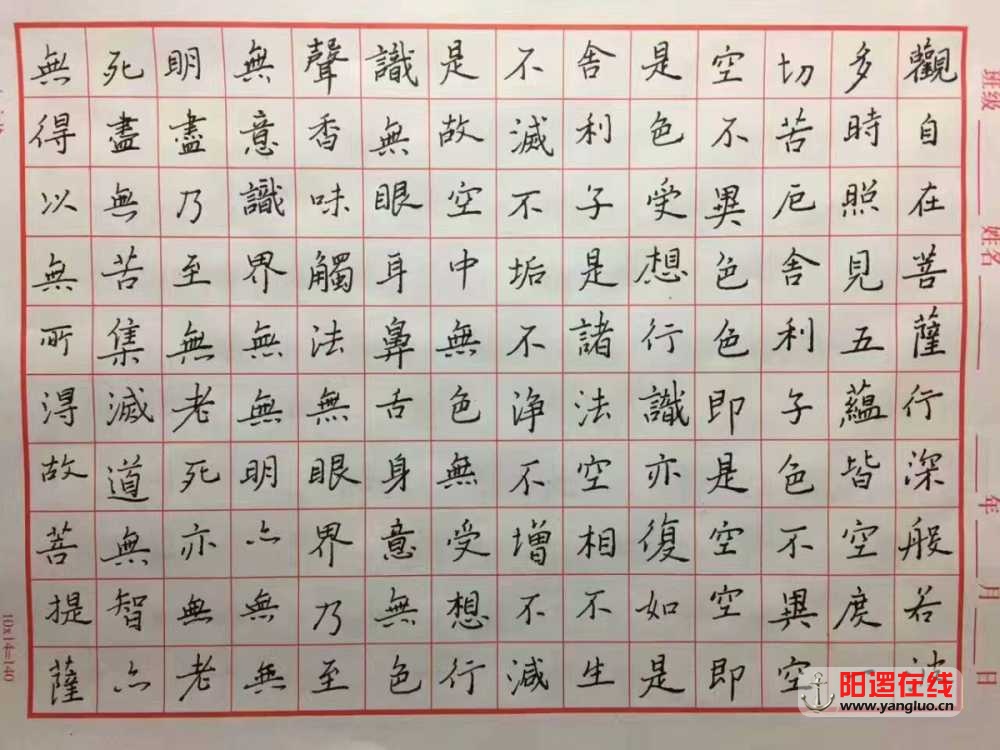 觀自在菩薩行深般若
多時照見五蘊皆空度一
切苦厄舍利子色不異空
空不異色色即是空空即
是色受想行識亦復如是
舍利子是諸法空相不生
不滅不垢不浄不增不減
是故空中無色無受想行
識無眼耳鼻舌身意無色
聲香味觸法無眼界乃至
無意識界無無明亦無無
明盡乃至無老死亦無老
死盡無苦集滅道無智亦
無得以無所得故菩提薩
班级 姓名 年 月 日
10x14=140
阳逻在线
www.yangluo.cn